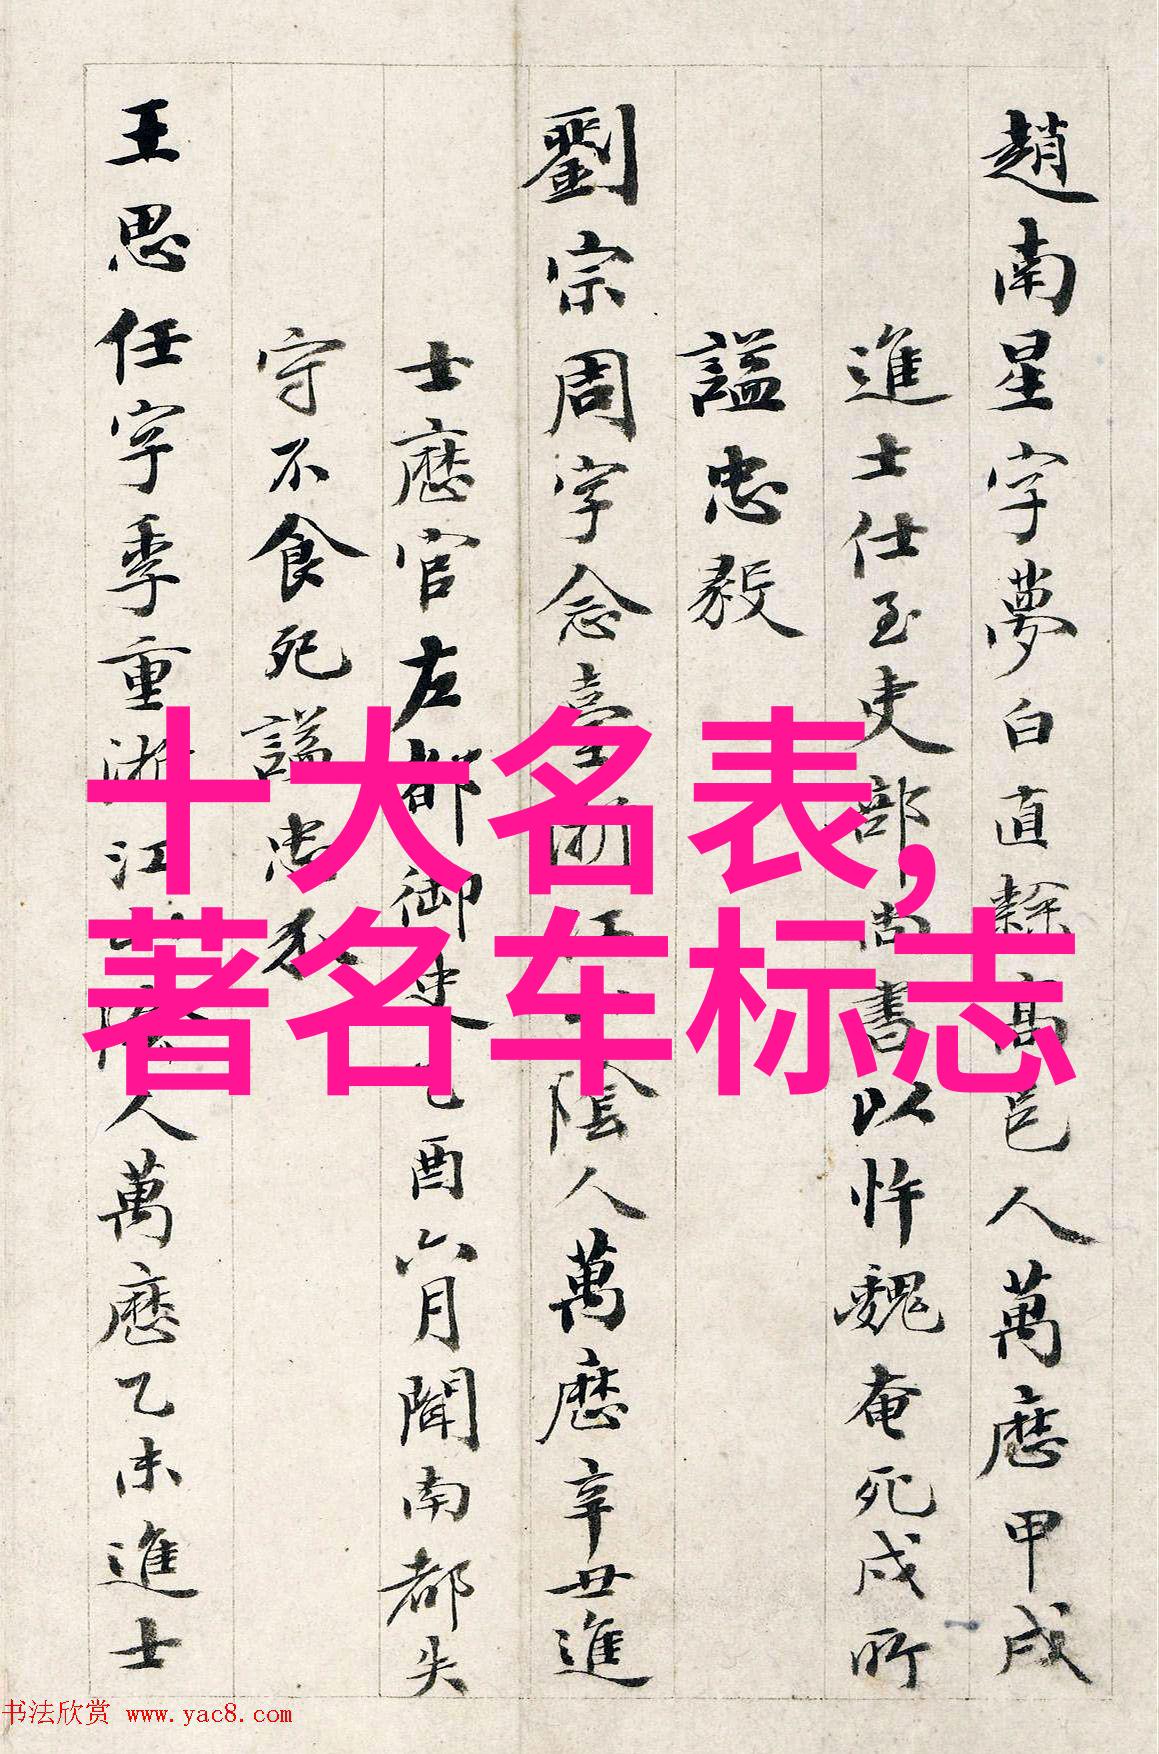 趙南星字夢白直隸高邑人萬曆甲戌
進士仕至吏部尚書以忤魏奄死戍所
謚忠毅
劉宗周字念臺浙江山陰人萬曆辛丑進
士歷官左都御史乙酉六月聞南都失
守不食死謚忠
王思任字季重浙江山陰人萬曆乙未進士
十大名表,
著名车标志
书法欣赏 www.yac8.com